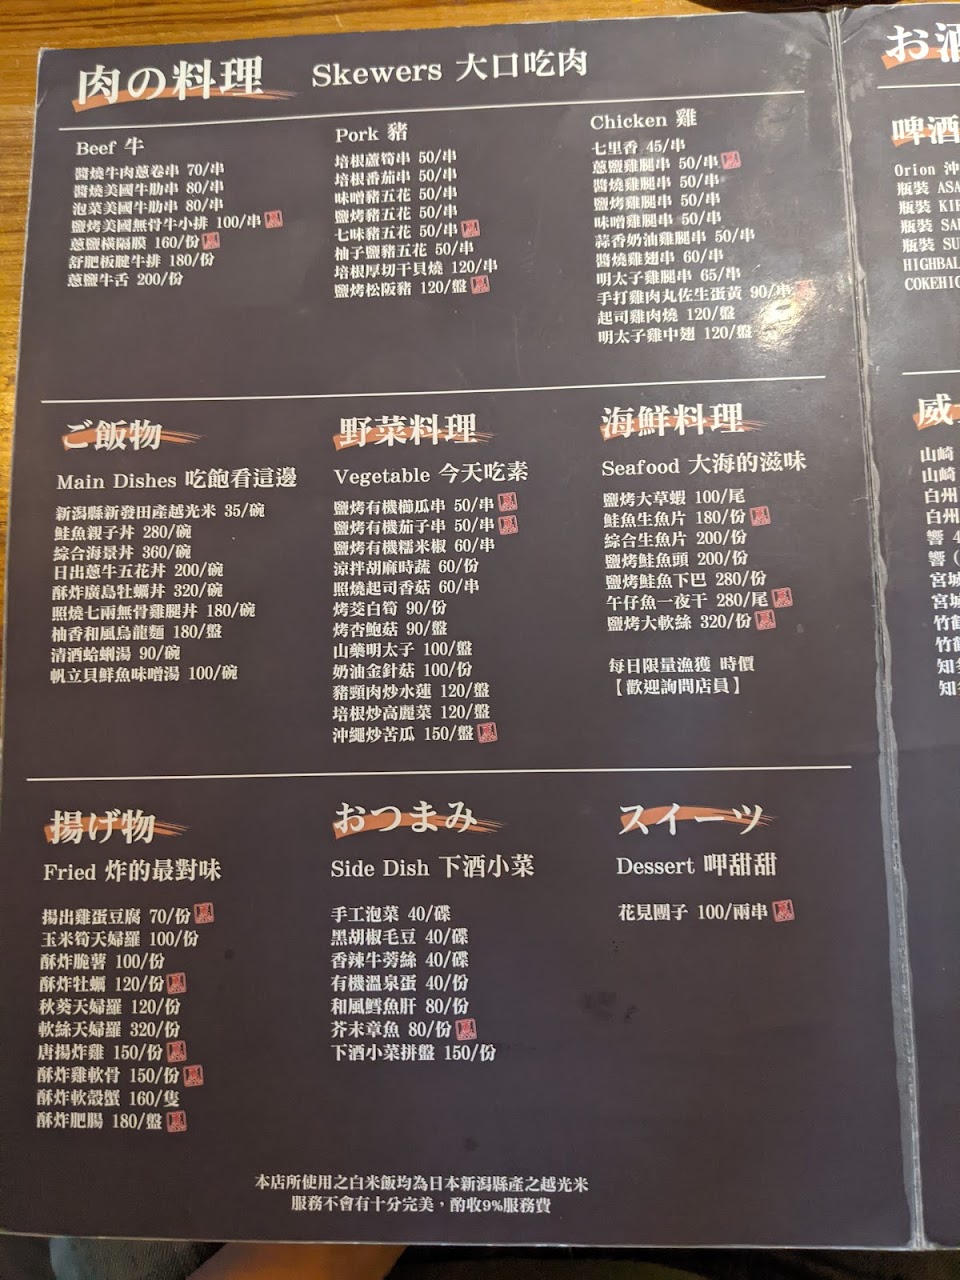 肉の料理 Skewers 大口吃肉
Beef 牛
醬燒牛肉蔥卷串 70/串
醬燒美國牛肋串 80/串
泡菜美國牛肋串 80/串
鹽烤美國無骨牛小排 100/串
蔥鹽橫隔膜 160/份
舒肥板腱牛排 180/份
蔥鹽牛舌 200/份
Pork 豬
培根蘆筍串 50/串
培根番茄串 50/串
味噌豬五花 50/串
鹽烤豬五花 50/串
七味豬五花 50/串
柚子鹽豬五花 50/串
培根厚切干貝燒 120/串
鹽烤松阪豬 120/盤
Chicken 雞
七里香 45/串
蔥鹽雞腿串 50/串
醬燒雞腿串 50/串
鹽烤雞腿串 50/串
味噌雞腿串 50/串
蒜香奶油雞腿串 50/串
醬燒雞翅串 60/串
明太子雞腿串 65/串
手打雞肉丸佐生蛋黃 90/串
起司雞肉燒 120/盤
明太子雞中翅 120/盤
ご飯物
Main Dishes 吃飽看這邊
新潟縣新發田產越光米 35/碗
鮭魚親子丼 280/碗
綜合海景丼 360/碗
日出蔥牛五花丼 200/碗
酥炸廣島牡蠣丼 320/碗
照燒七兩無骨雞腿丼 180/碗
柚香和風烏龍麵 180/盤
清酒蛤蜊湯 90/碗
帆立貝鮮魚味噌湯 100/碗
野菜料理
Vegetable 今天吃素
鹽烤有機櫛瓜串 50/串
鹽烤有機茄子串 50/串
鹽烤有機糯米椒 60/串
涼拌胡麻時蔬 60/份
照燒起司香菇 60/串
烤茭白筍 90/份
烤杏鮑菇 90/盤
山藥明太子 100/盤
奶油金針菇 100/份
豬頸肉炒水蓮 120/盤
培根炒高麗菜 120/盤
沖繩炒苦瓜 150/盤
海鮮料理
Seafood 大海的滋味
鹽烤大草蝦 100/尾
鮭魚生魚片 180/份
綜合生魚片 200/份
鹽烤鮭魚頭 200/份
鹽烤鮭魚下巴 280/份
午仔魚一夜干 280/尾
鹽烤大軟絲 320/份
每日限量漁獲 時價
【歡迎詢問店員】
揚げ物
Fried 炸的最對味
揚出雞蛋豆腐 70/份
玉米筍天婦羅 100/份
酥炸脆薯 100/份
酥炸牡蠣 120/份
秋葵天婦羅 120/份
軟絲天婦羅 320/份
唐揚炸雞 150/份
酥炸雞軟骨 150/份
酥炸軟殼蟹 160/隻
酥炸肥腸 180/盤
おつまみ
Side Dish 下酒小菜
手工泡菜 40/碟
黑胡椒毛豆 40/碟
香辣牛蒡絲 40/碟
有機溫泉蛋 40/份
和風鱈魚肝 80/份
芥末章魚 80/份
下酒小菜拼盤 150/份
スイーツ
Dessert 呷甜甜
花見團子 100/兩串
本店所使用之白米飯均為日本新潟縣產之越光米
服務不會有十分完美，酌收9%服務費
お酒
啤酒
Orion 沖
瓶裝 ASA
瓶裝 KIR
瓶裝 SA
瓶裝 SU
HIGHBAL
COKEHIG
威
山崎
山崎
白州
白州
響 4
響 (
宮城
宮城
竹鶴
竹鶴
知多
知多